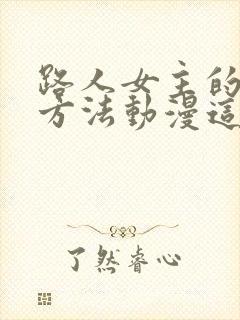 路人女主的
方法動漫這
了然睿心